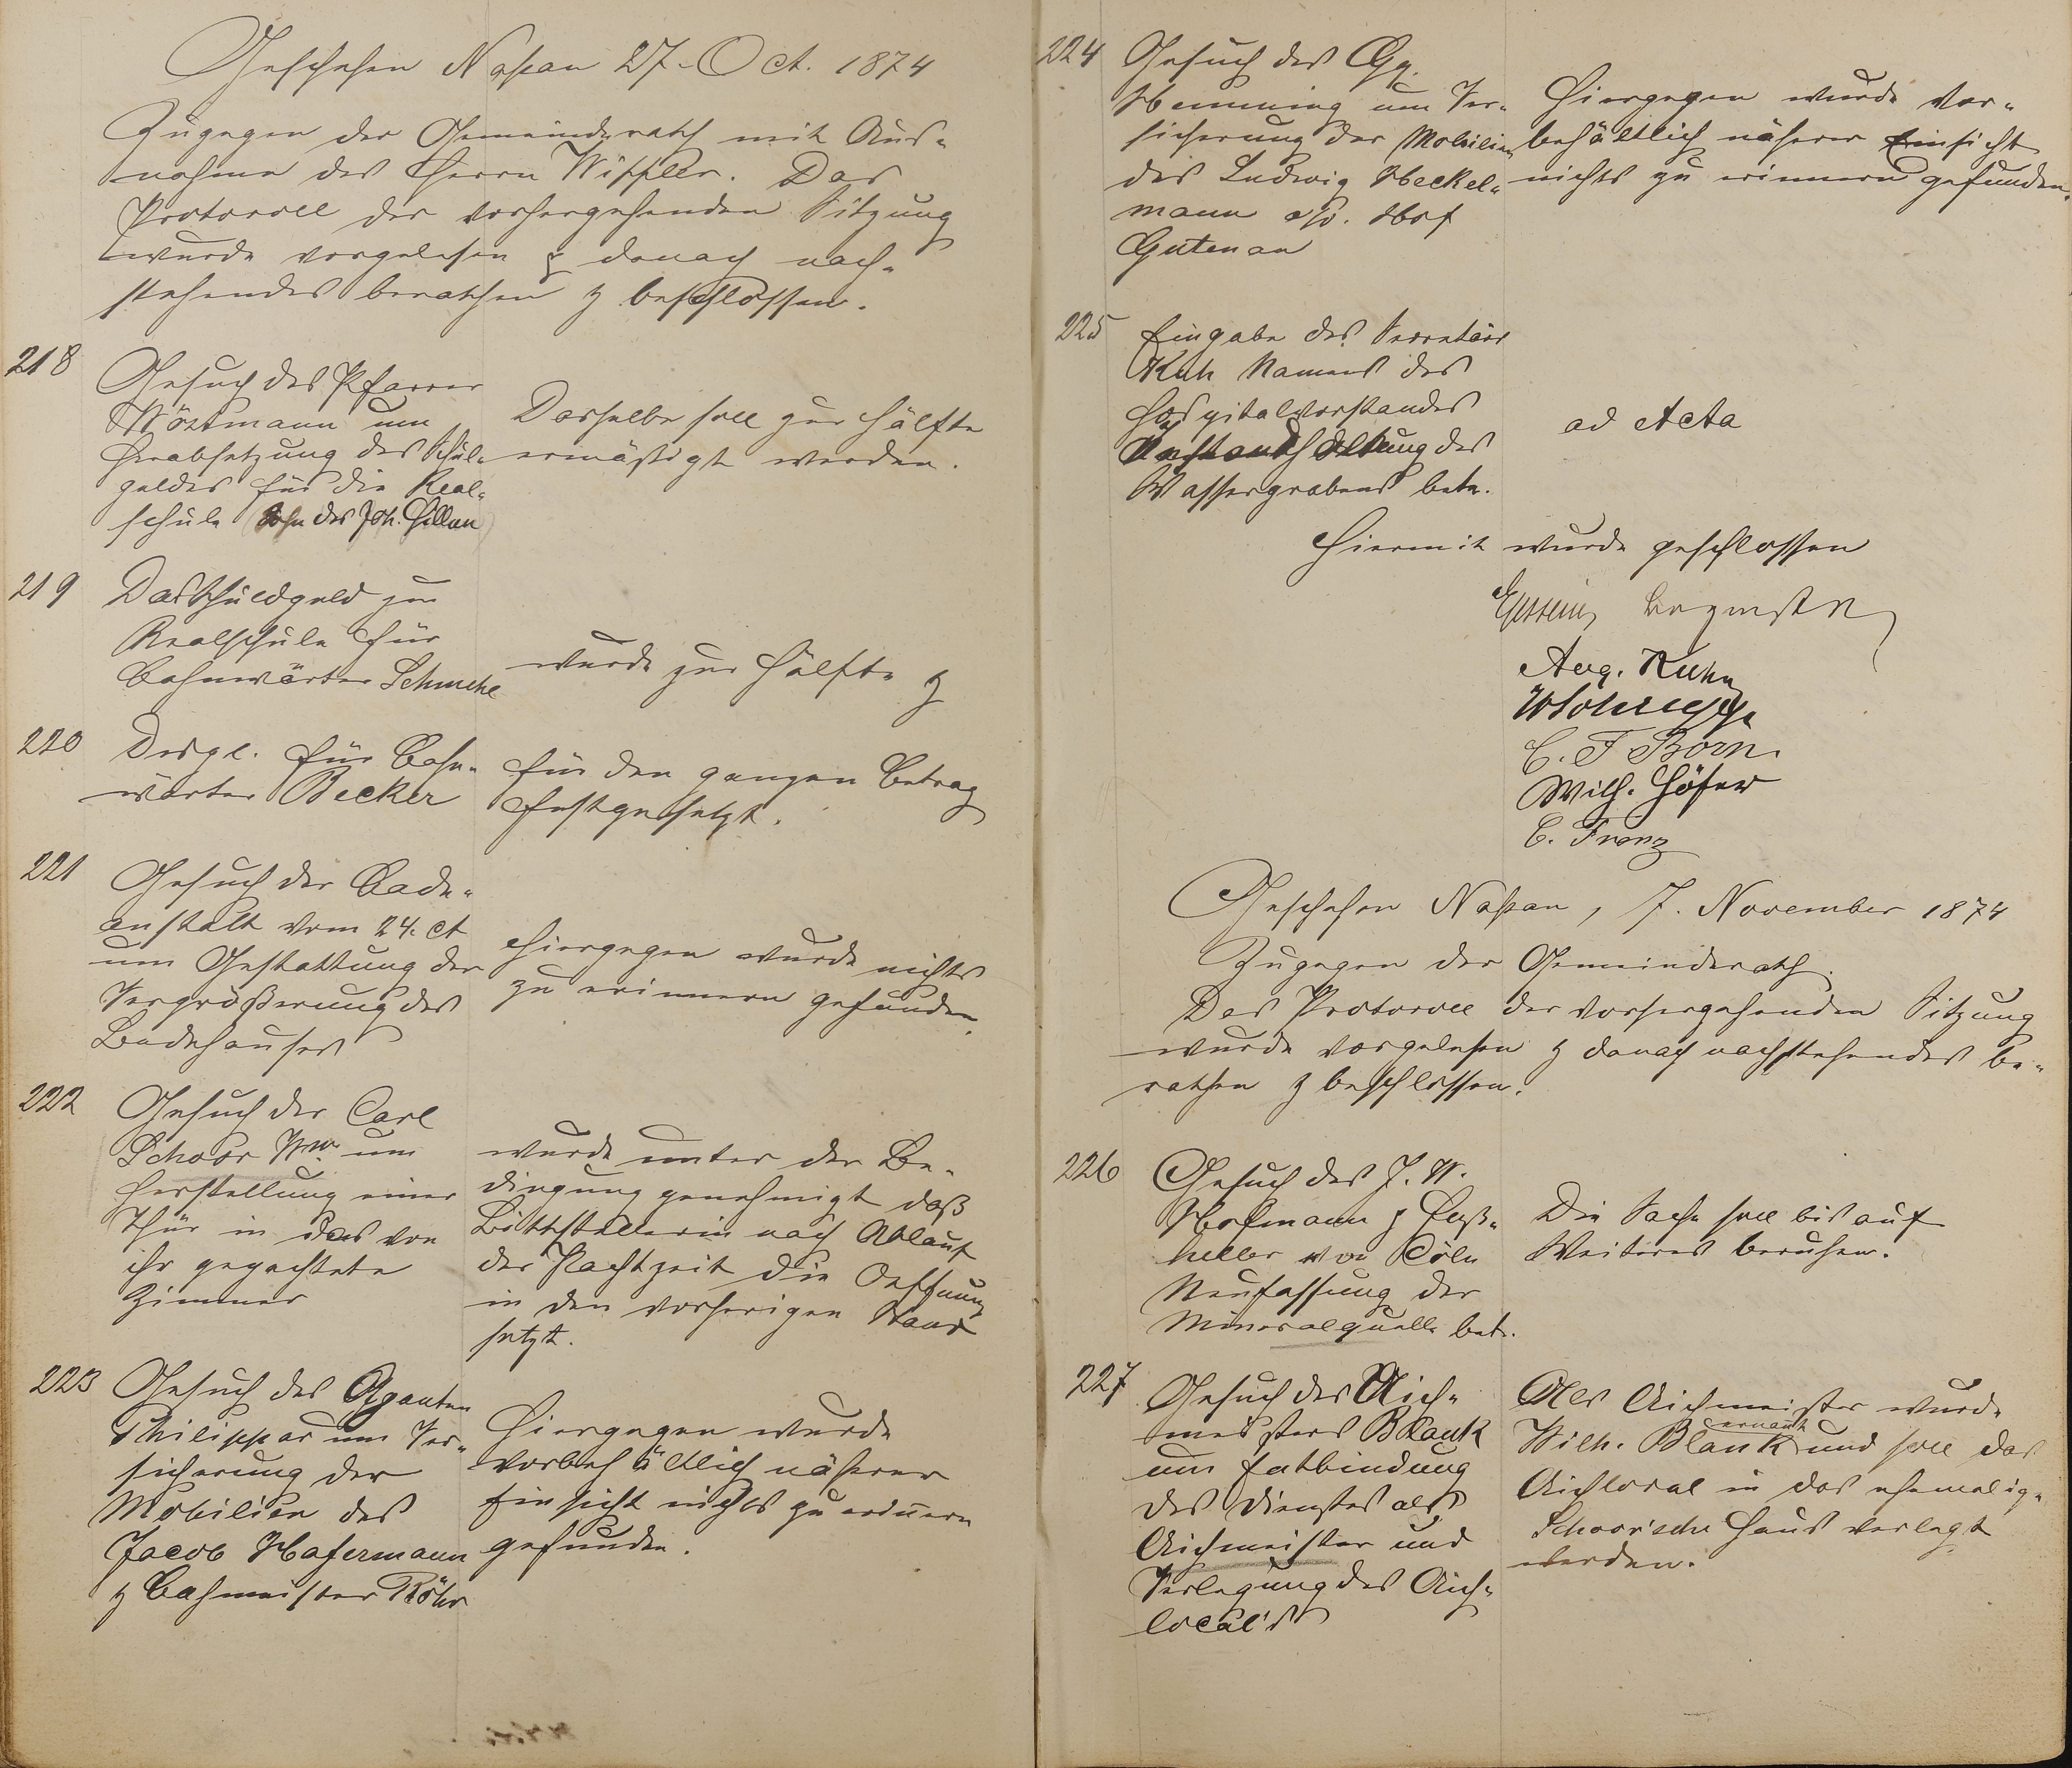 Geschehen Naßau 27. Oct. 1874
Zugegen der Gemeinderath mit Aus-
nahme des Herrn Wiffler. Das
Protocoll der vorhergehenden Sitzung
wurde vorgelesen & danach nach-
stehendes berathen & beschlossen.
218
Gesuch des Pfarrer
Wörtmann um
Herabsetzung des Schul-
geldes für die Real-
schule (Sohn des Joh. Hillan)
Dasselbe soll zur Hälfte
ermäßigt werden.
219
Das Schuldgeld zur
Realschule für
Bahnwärter Schuche
wurde zur Hälfte &
220
Desgl. für Bahn-
wärter Becker
für den ganzen Betrag
festgesetzt.
221
Gesuch der Bade-
anstalt vom 24. ct
um Gestattung der
Vergrößerung des
Badehauses
Hiergegen wurde nichts
zu erinnern gefunden.
222
Gesuch der Carl
Schoor Ww. um
Herstellung einer
Thür in das von
ihr gepachtete
Zimmer
wurde unter der Be-
dingung genehmigt daß
Bittstellerin nach Ablauf
der Pachtzeit die Oeffnung
in den vorherigen Stand
setzt.
223
Gesuch des Agenten
Philippar um Ver-
sicherung der
Mobilien des
Jacob Hafermann
& Bahmeister Röhr
Hiergegen wurde
vorbehältlich näherer
Einsicht nichts zu erinnern
gefunden.
224
Gesuch des Gg.
Hemming um Ver-
sicherung der Mobilien
des Ludwig Heckel-
mann Hof
Gutenau
Hiergegen wurde vor-
behältlich näherer Einsicht
nichts zu erinnern gefunden.
225
Eingabe des Secretärs
Kuh Namens des
Hospitalvorstandes
des
Wassergrabens betr.
ad Acta
Hiermit wurde geschlossen
Bürgmstr
Aug. Kuhn
C. F Born.
Wilh. Höfer
C. Franz
Geschehen Naßau, 7. November 1874
Zugegen der Gemeinderath.
Das Protocoll der vorhergehenden Sitzung
wurde vorgelesen & danach nachstehendes be-
rathen & beschlossen.
226
Gesuch des J. W.
Hofmann &
heller von Cöln
Neufassung der
Mineralquelle betr.
Die Sache soll bis auf
Weiteres beruhen.
227
Gesuch des Aich-
meisters Blank
um Entbindung
des Dienstes als
Aichmeister und
Verlegung des Aich-
local's
Als Aichmeister wurde
Wilh. Blank ernannt und soll das
Aichlocal in das ehemalige
Schoor'sche Haus verlegt
werden.